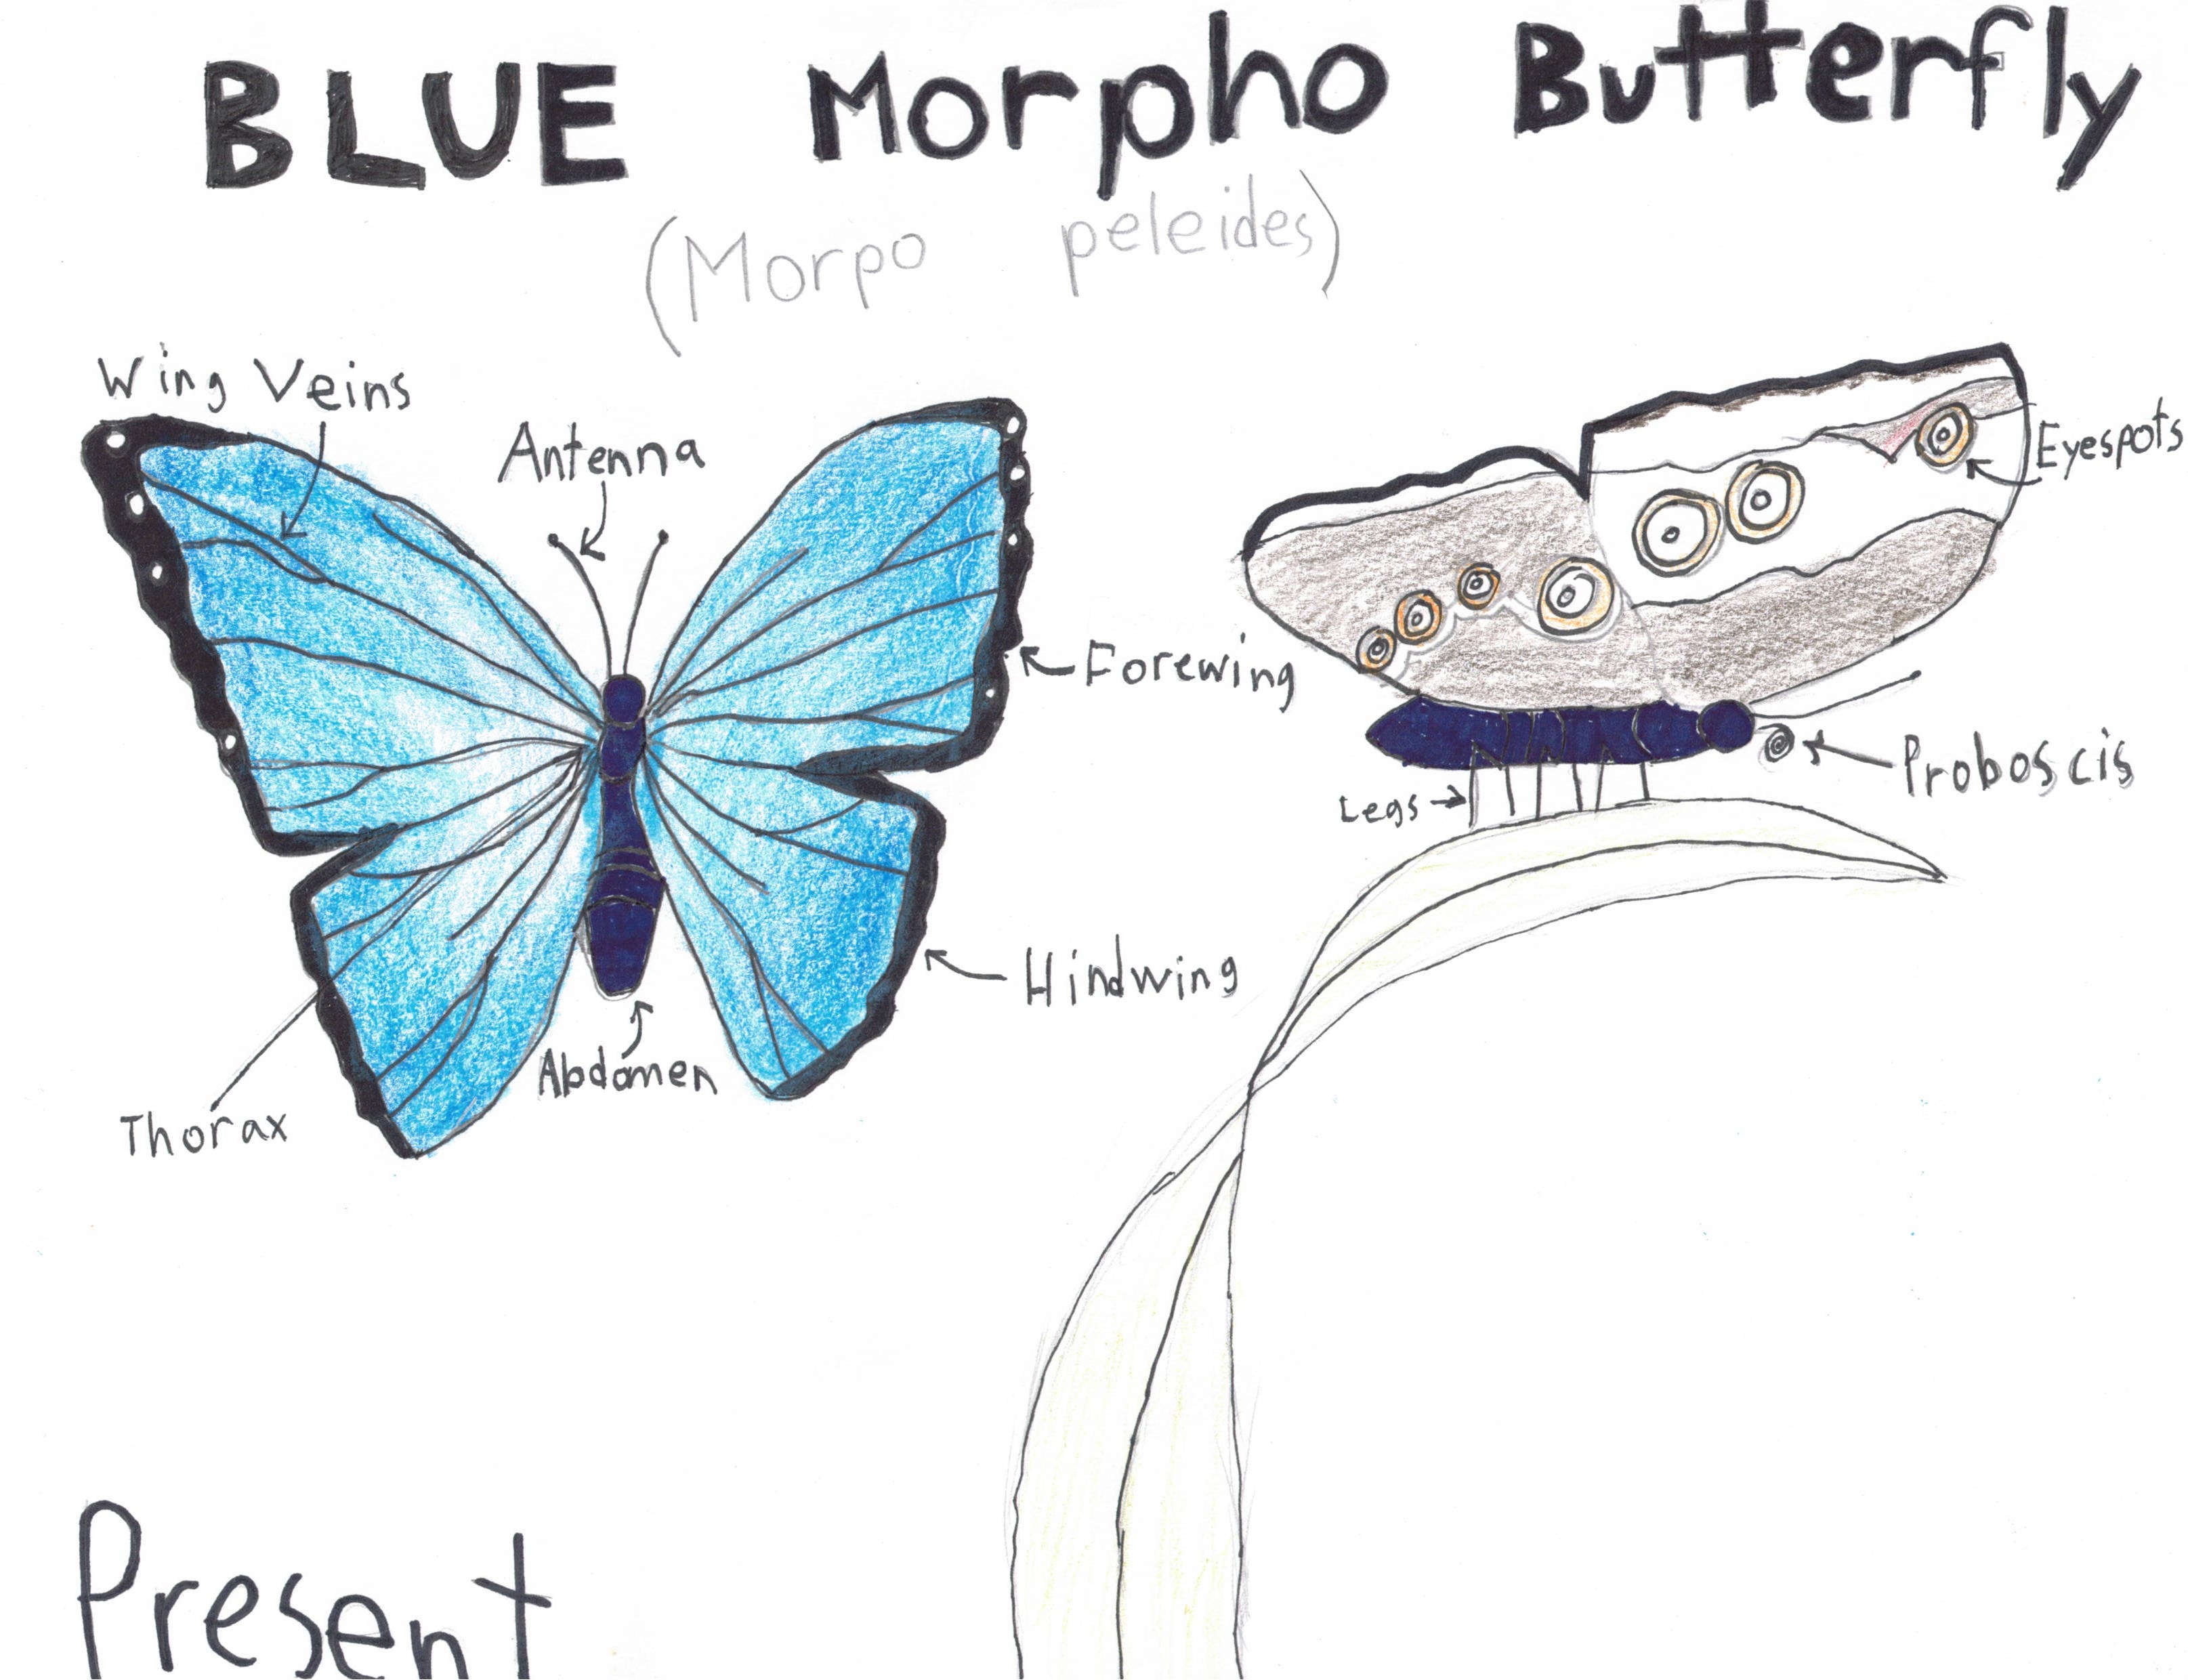 BLUE Morpho Butterfly
(Morpo peleides)
Wing Veins
Antenna
Eyespots
Forewing
Proboscis
Legs
Hindwing
Abdomen
Thorax
Present